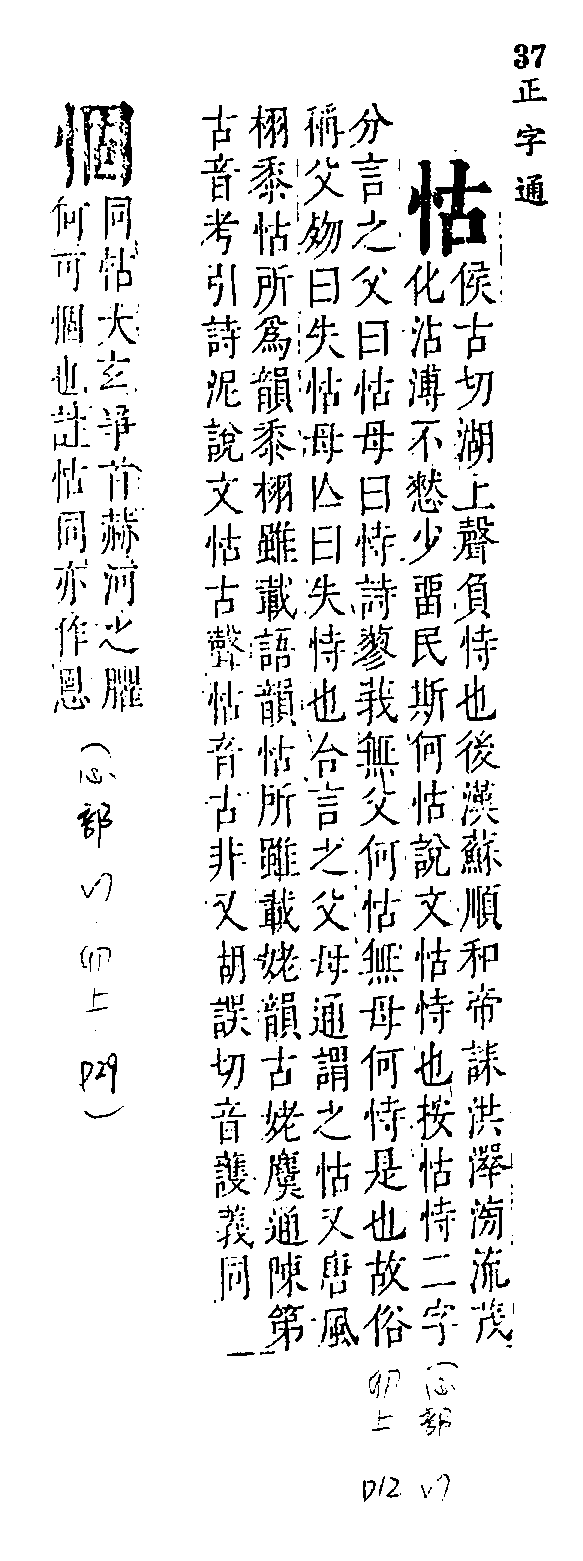 37
正字通
怙
侯古切湖上聲負恃也後漢蘇順和帝誄洪澤滂流茂
化沾溥不憖少畱民斯何怙說文怙恃也按怙恃二字
分言之父曰怙母曰恃詩蓼我無父何怙無母何恃是也故俗
稱父歾曰失怙母亾曰失恃也合言之父母通謂之怙又唐風
栩黍怙所爲韻黍栩雖載語韻怙所雖載姥韻古姥麌通陳第
古音考引詩泥說文怙古聲怙音古非又胡誤切音護義同
(心部 
上
D12
㤱
同怙太玄爭首赫河之臞
何可㤱也註怙同亦作恩
(心部
上
D29)